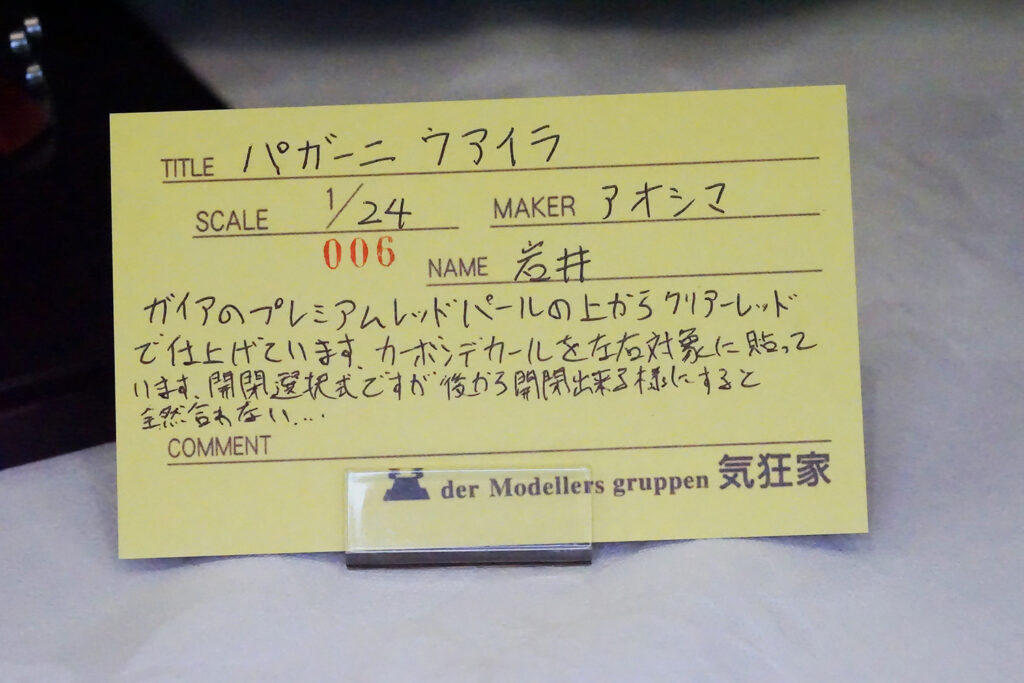 TITLE パガーニ ウアイラ
SCALE 1/24 MAKER アオシマ
006 NAME 岩井
ガイアのプレミアムレッドパールの上からクリアーレッド
で仕上げています。カーボンデカールを左右対象に貼って
います。開閉選択式ですが後から開閉出来る様にすると
全然合わない...
COMMENT
der Modellers gruppen 気狂家